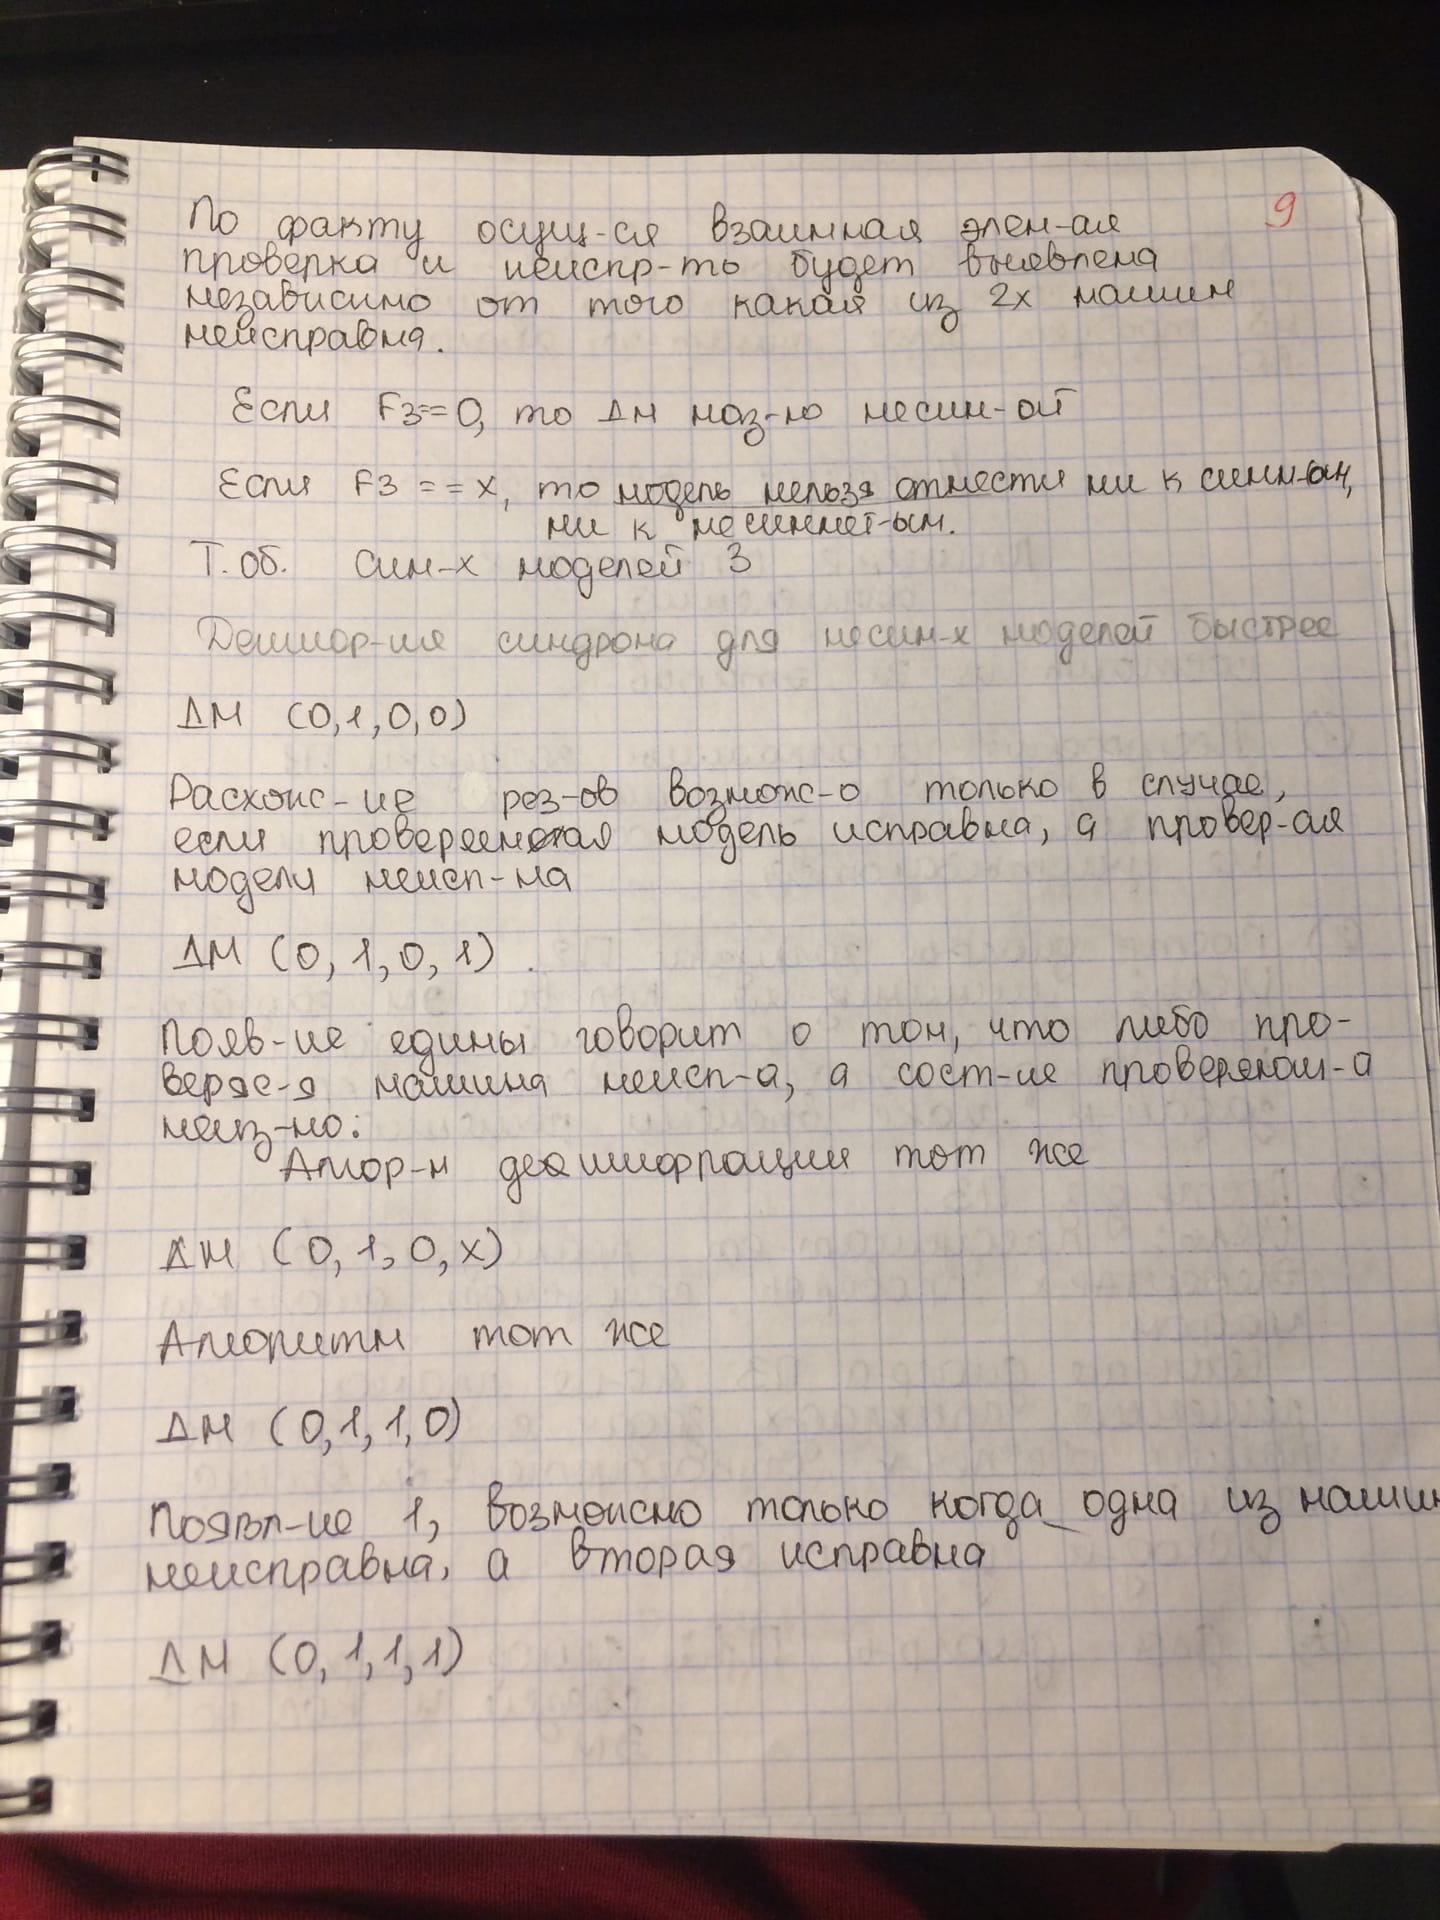 9
По факту осущ-ся взаимная элем-ая
проверка и неиспр-ть будет выявлена
независимо от того какая из 2х машин
неисправна.
Если F3==0, то ДМ наз-ю несим-ой
Если F3 == x, то модель нельзя отнести ни к симм-ым,
ни к несиммет-ым.
Т.об. сим-х моделей 3
Дешиор-ия синдрома для несим-х моделей быстрее
ДМ (0,1,0,0)
Расхожд-ие рез-ов возмож-о только в случае,
если модель исправна, а провер-ая
модели неисп-на
ДМ (0,1,0,1)
Появ-ие едины говорит о том, что либо про-
веряе-я машина неисп-а, а сост-ие
неиз-но:
Алгор-м дешифрации тот же
ДМ (0,1,0,x)
Алгоритм тот же
ДМ (0,1,1,0)
Появл-ие 1, возможно только когда одна из машин
неисправна, а вторая исправна
ДМ (0,1,1,1)